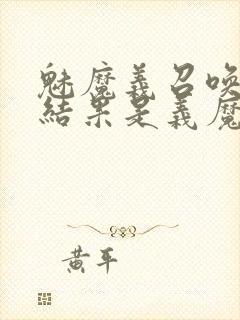 魅魔義召喚
結果是義魔
黃平